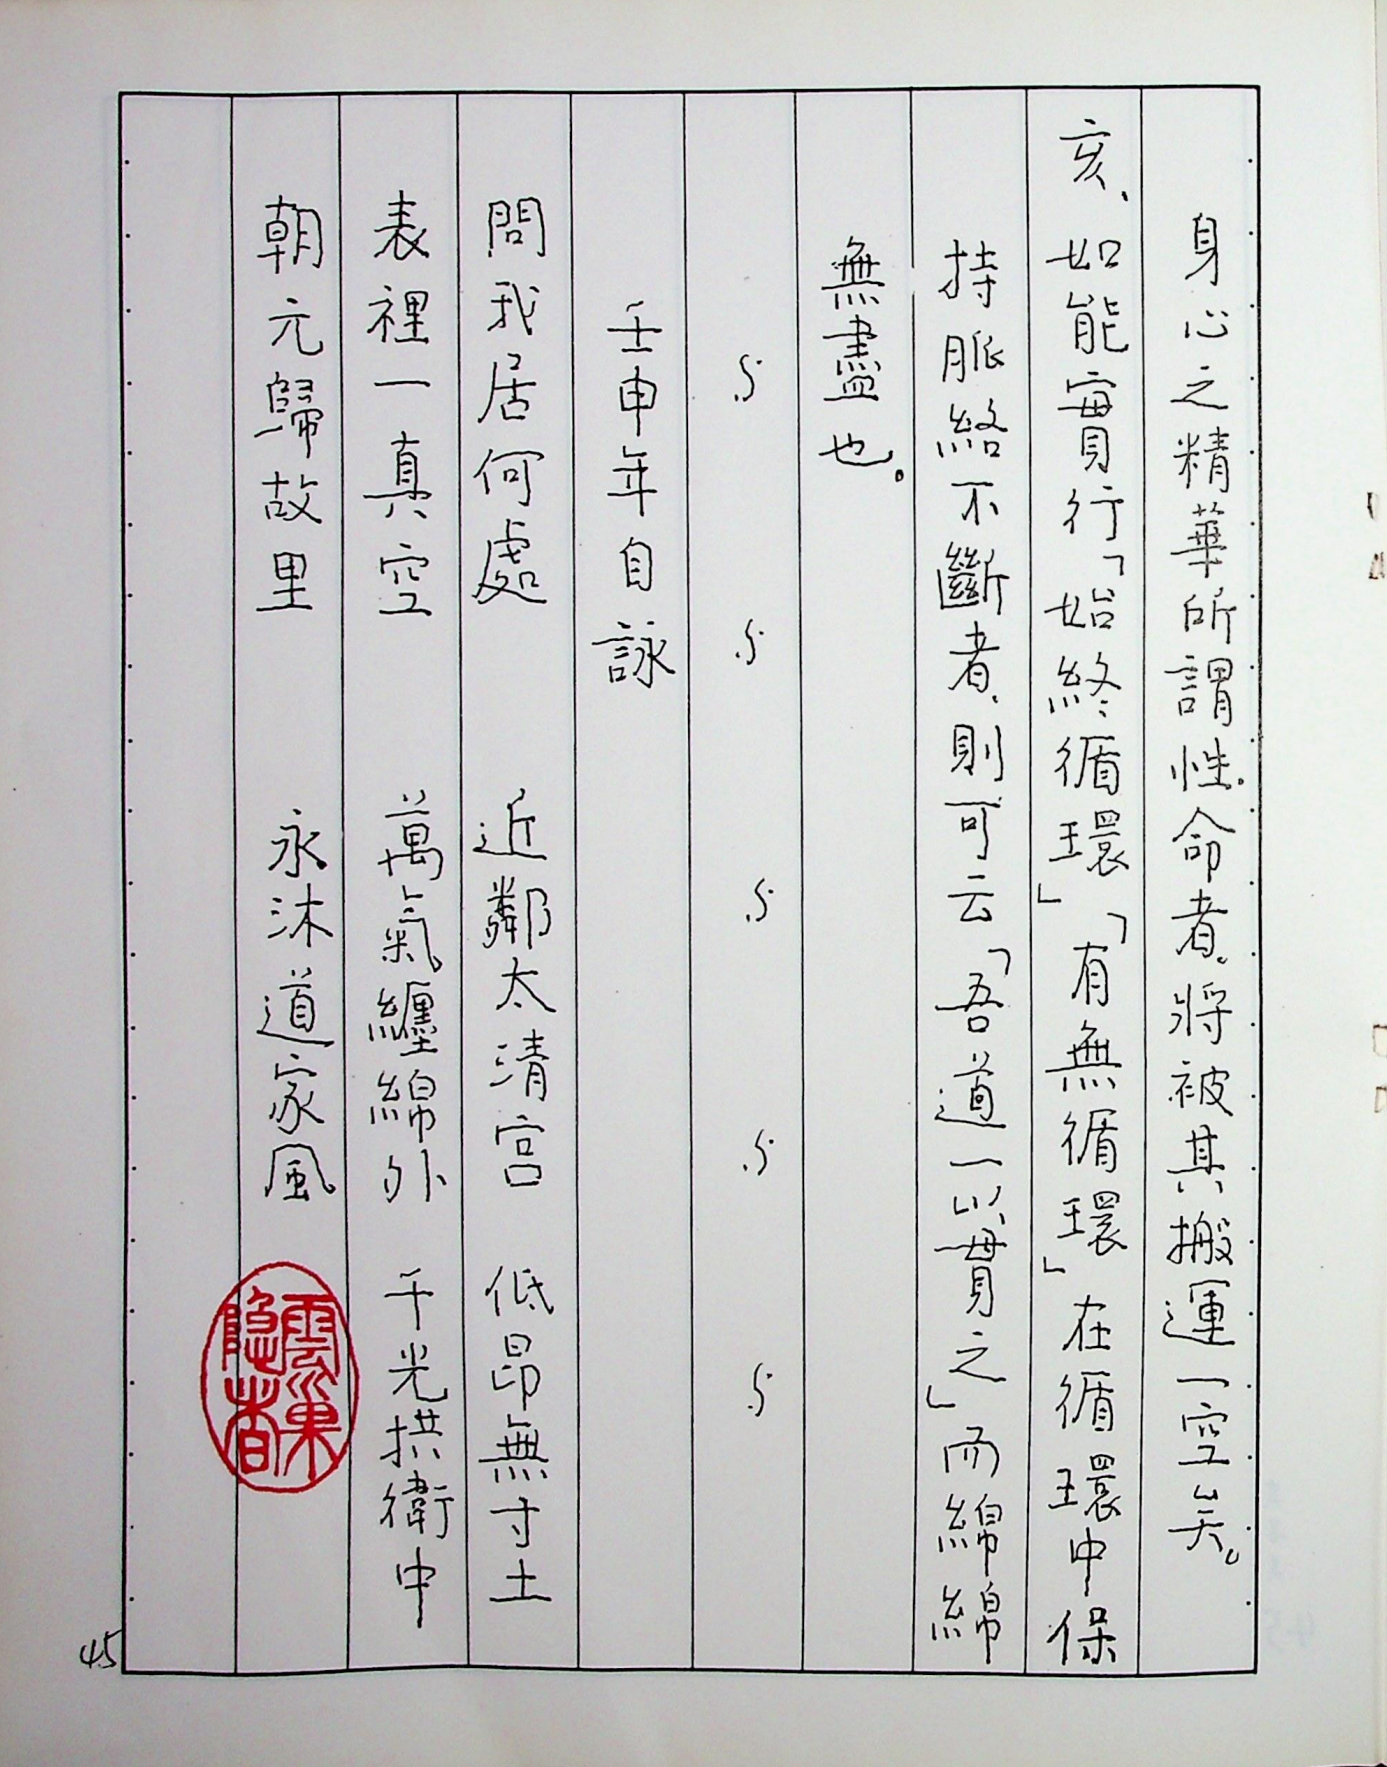 身心之精華所謂性.命者.將被其搬運一空矣。
亥、如能實行「始終循環」「有無循環」在循環中保
持脈絡不斷者、則可云「吾道一以貫之」而綿綿
無盡也。
壬申年自詠
問我居何處　近鄰太清宮　低昂無寸土
表裡一真空　萬氣纏綿外　千光拱衛中
朝元歸故里　永沐道家風
雲巢隐者
45